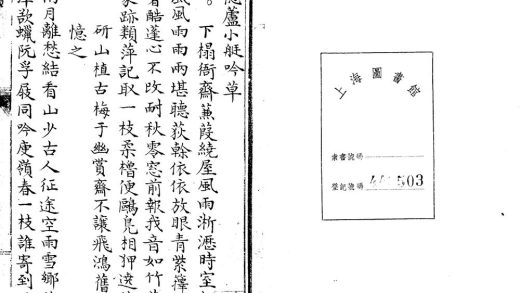 上海圖書館
索書號碼
登記號碼 503
蘆小艇吟草
下榻衙齋蒹葭繞屋風雨淅瀝時室
風風雨雨兩堪聽荻榦依依放眼青紫籜
着酷蓬心不改耐秋零窓前報我音如竹
家跡類萍記取一枝柔櫓便鷗鳧相狎
斫山植古梅于幽賞齋不讓飛鴻舊
憶之
月離愁結看山少古人征途空雨雪
欲蠟阮孚屐同吟庾嶺春一枝誰寄到